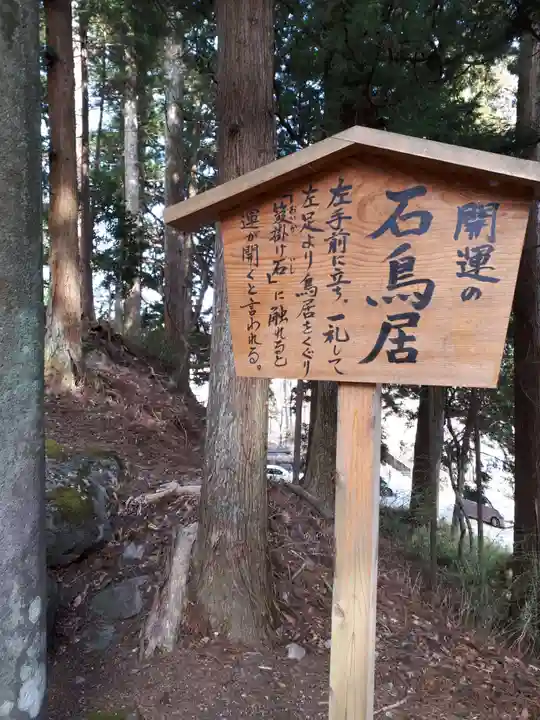 開運の
石鳥居
左手前に立ち、一礼して
左足より鳥居をくぐり
「笈掛け石」に触れると
運が開くと言われる。